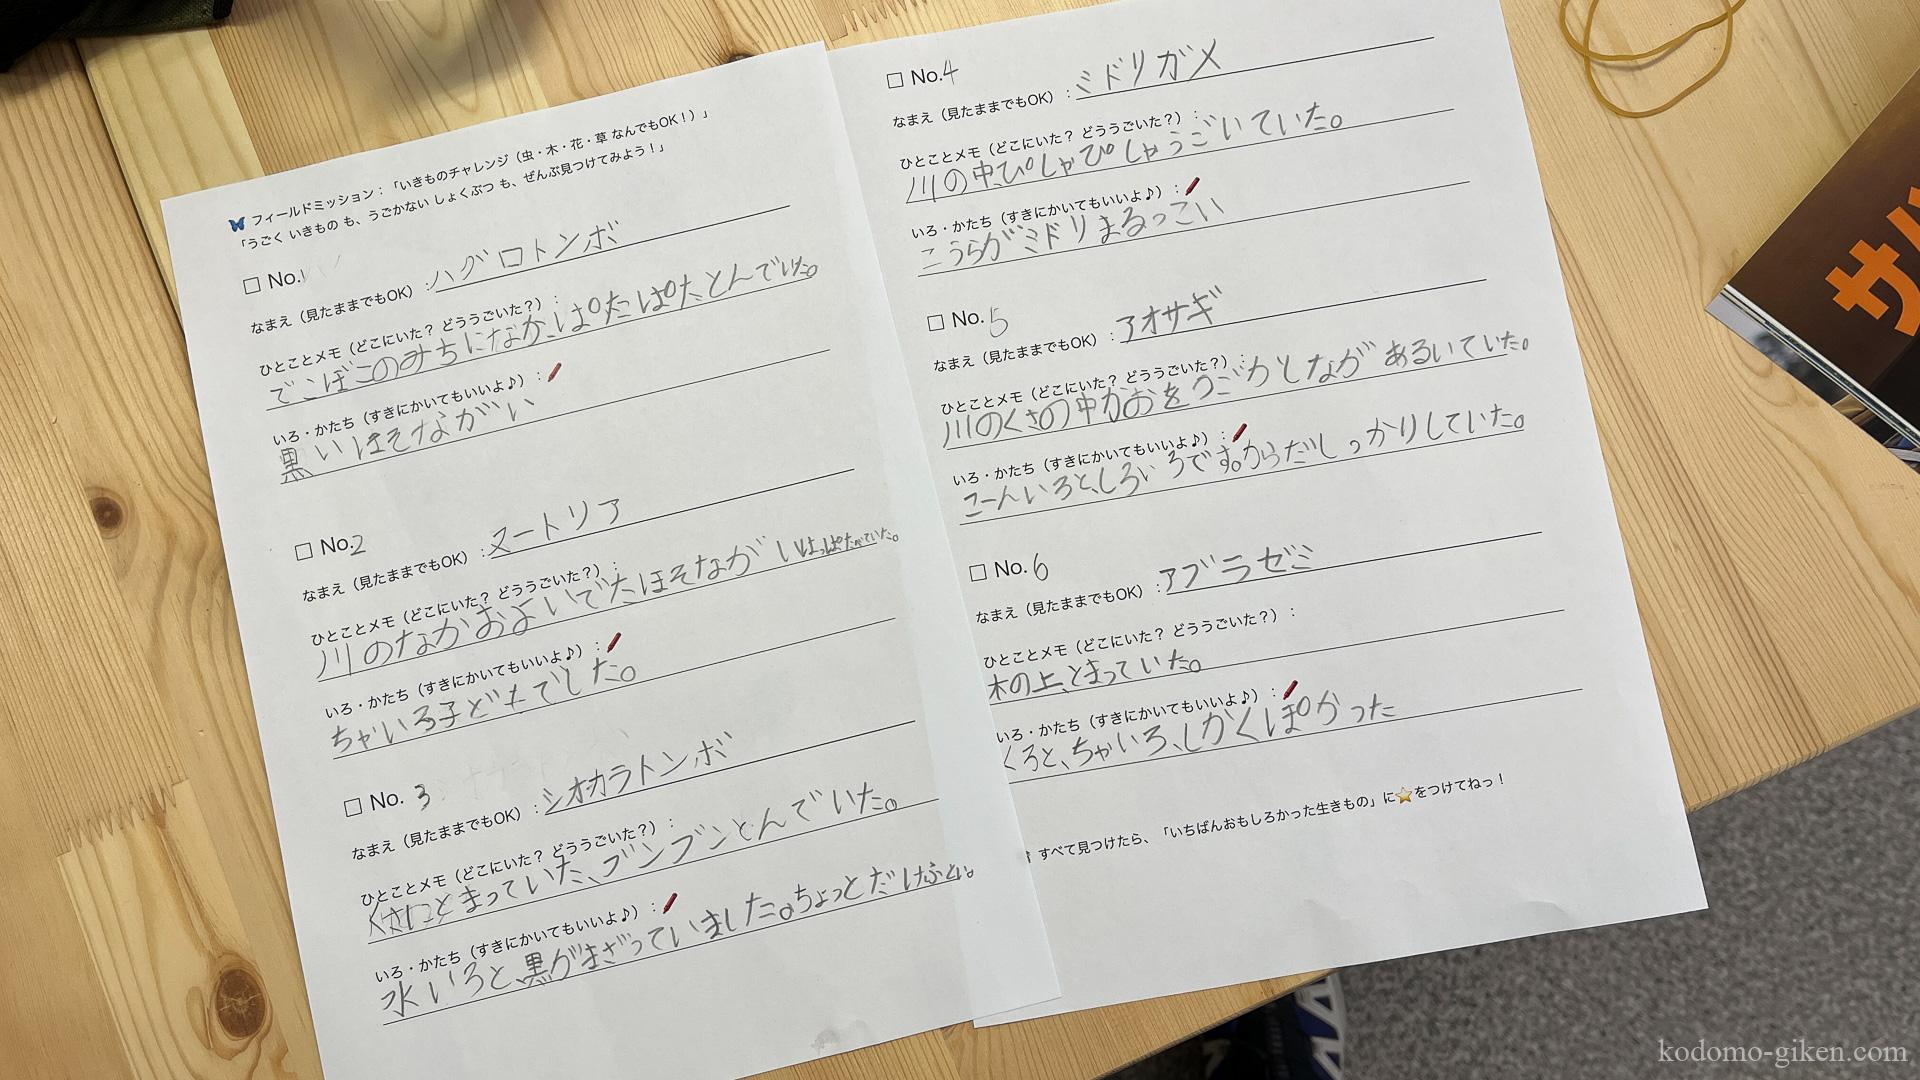 フィールドミッション：「いきものチャレンジ（虫・木・花・草 なんでもOK！）」
「うごく いきもの も、うごかない しょくぶつ も、ぜんぶ見つけてみよう！」
□ No.1
なまえ（見たままでもOK）：ハグロトンボ
ひとことメモ（どこにいた？ どううごいた？）：
でこぼこのみちになか、ぱたぱた、とんでいた。
いろ・かたち（すきにかいてもいいよ♪）：
黒いほそながい
□ No.2
なまえ（見たままでもOK）：ヌートリア
ひとことメモ（どこにいた？ どううごいた？）：
川のなかおよいでたほそながいはっぱたべていた。
いろ・かたち（すきにかいてもいいよ♪）：
ちゃいろ子どもでした。
□ No.3
なまえ（見たままでもOK）：シオカラトンボ
ひとことメモ（どこにいた？ どううごいた？）：
くさにとまっていた、ブンブンとんでいた。
いろ・かたち（すきにかいてもいいよ♪）：
水いろと、黒がまざっていました。ちょっとだけふとい。
□ No.4
なまえ（見たままでもOK）：ミドリガメ
ひとことメモ（どこにいた？ どううごいた？）：
川の中、ぴしゃぴしゃうごいていた。
いろ・かたち（すきにかいてもいいよ♪）：
こうらがミドリまるっこい
□ No.5
なまえ（見たままでもOK）：アオサギ
ひとことメモ（どこにいた？ どううごいた？）：
川のくさの中かおをうごかしながあるいていた。
いろ・かたち（すきにかいてもいいよ♪）：
こーんいろと、しろいろです。からだしっかりしていた。
□ No.6
なまえ（見たままでもOK）：アブラゼミ
ひとことメモ（どこにいた？ どううごいた？）：
木の上、とまっていた。
いろ・かたち（すきにかいてもいいよ♪）：
くろと、ちゃいろ、しかくぽかった
すべて見つけたら、「いちばんおもしろかった生きもの」に⭐をつけてねっ！
サバ
kodomo-giken.com